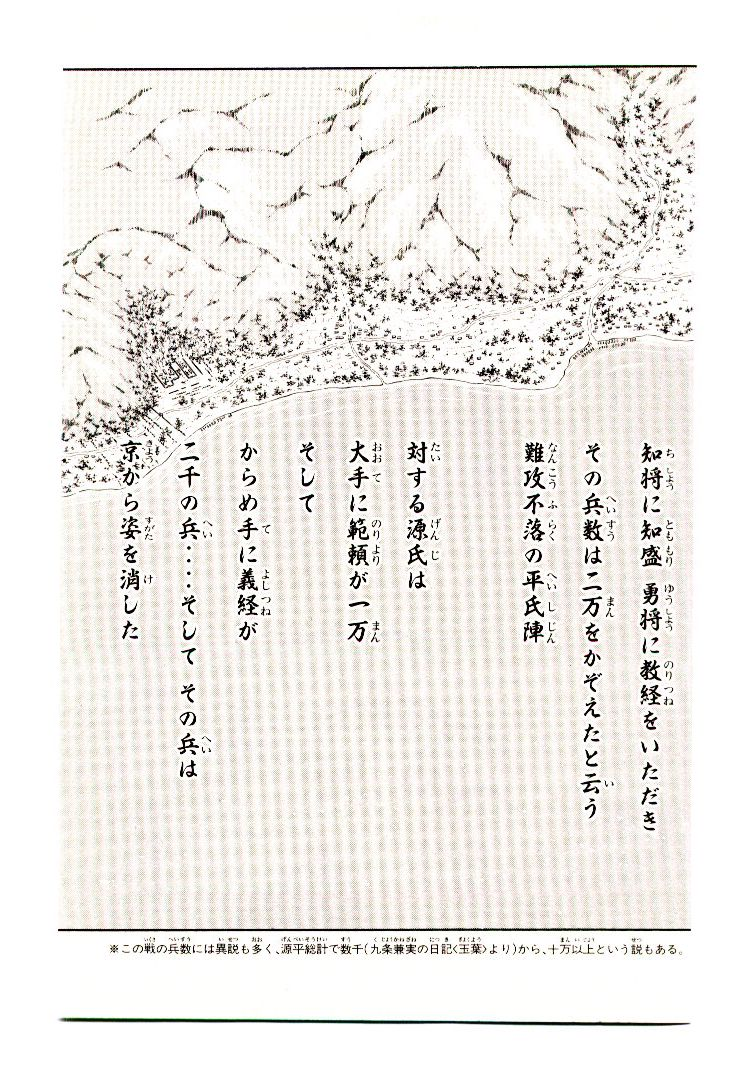 知将に知盛 勇将に教経をいただき
その兵数は二万をかぞえたと云う
難攻不落の平氏陣
対する源氏は
大手に範頼が一万
そして
からめ手に義経が
二千の兵‥‥そして その兵は
京から姿を消した
※この戦の兵数には異説も多く、源平総計で数千(九条兼実の日記<玉葉>より)から、十万以上という説もある。